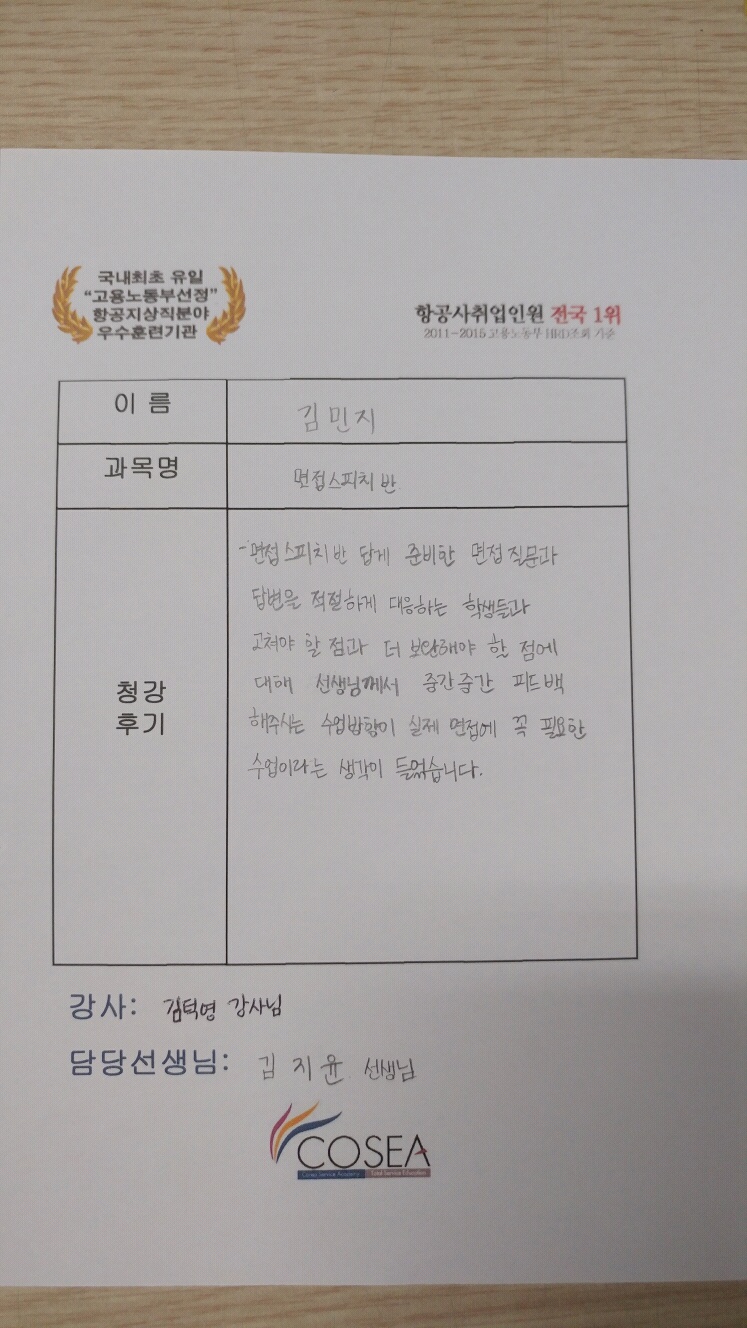 국내최초 유일
“고용노동부선정”
항공지상직분야
우수훈련기관
항공사취업인원 전국 1위
2011-2015 고용노동부 HRD조회 기준
이 름
김민지
과목명
면접스피치반
청강
후기
-면접스피치반 답게 준비한 면접질문과
답변을 적절하게 대응하는 학생들과
고쳐야 할 점과 더 보완해야 할 점에
대해 선생님께서 중간중간 피드백
해주시는 수업방향이 실제 면접에 꼭 필요한
수업이라는 생각이 들었습니다.
강사: 김덕영 강사님
담당선생님: 김지윤 선생님
COSEA
Cosea Service Academy Total Service Education